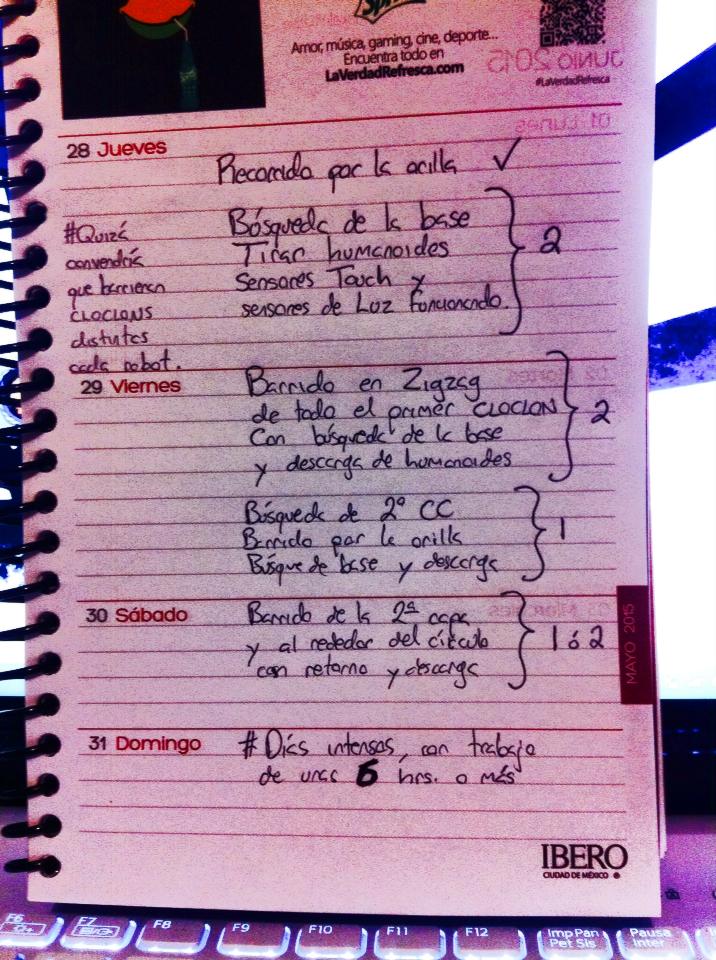 Amor, música, gaming, cine, deporte...
Encuentra todo en
LaVerdadRefresca.com
#LaVerdadRefresca
JUNIO 2015
01 Lunes
28 Jueves
Recorrido por la orilla ✓
#Quizá
convendría
que barrieran
CLOCLONS
distintos
cada robot.
Bósqueda de la base
Tirar humanoides
Sensores Touch y
sensores de Luz funcionando.
2
29 Viernes
Barrido en Zigzag
de todo el primer CLOCLON
Con búsqueda de la base
y descarga de humanoides
2
Búsqueda de 2º CC
Barrido por la orilla
Búsque de base y descarga
1
30 Sábado
Barrido de la 2ª capa
y al rededor del círculo
con retorno y descarga
1 ó 2
MAYO 2015
31 Domingo
# Días intensos, con trabajo
de unas 6 hrs. o más
IBERO
CIUDAD DE MÉXICO
F6
F7
F8
F9
F10
F11
F12
Imp Pan
Pet Sis
Pausa
Inter